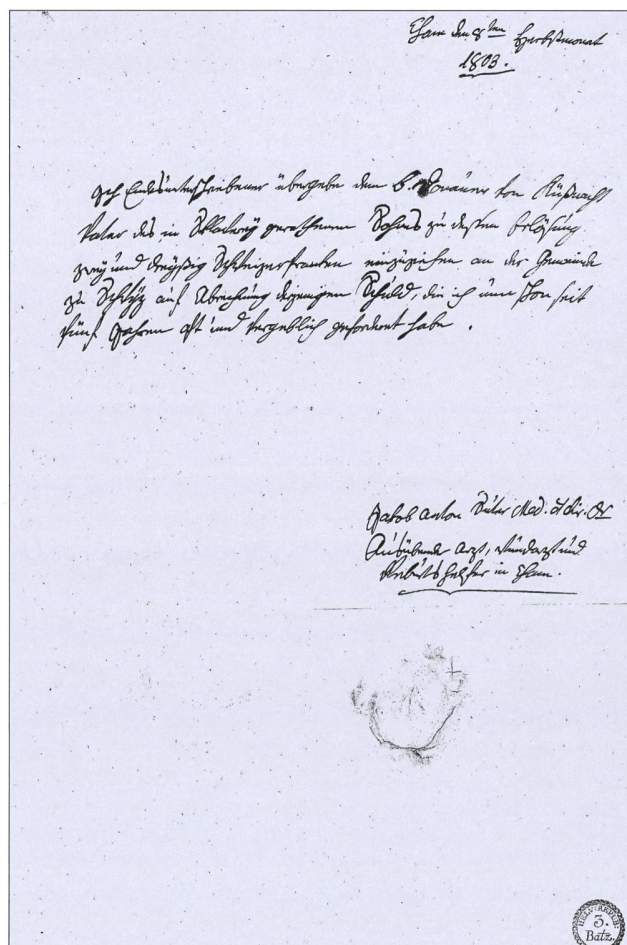 Cham den 8ten Herbstmonat
1803.
Ich Endsunterschriebener übergebe dem B. Donauer von Küßnacht
Vater des in Sclaverey gerathenen Sohns zu deßen Erlösung
zwey und dreyßig Schweizerfranken einzuziehen an der Gemeinde
zu Schwyz auf Abrechnung derjenigen Schuld, die ich nun schon seit
fünf Jahren oft und vergeblich gefordert habe.
Jakob Anton Suter Med. et Chir. Dr
Ausübender Arzt, Wundarzt und
Geburtshelfer in Cham.
HELV. REPUB.
3.
Batz.